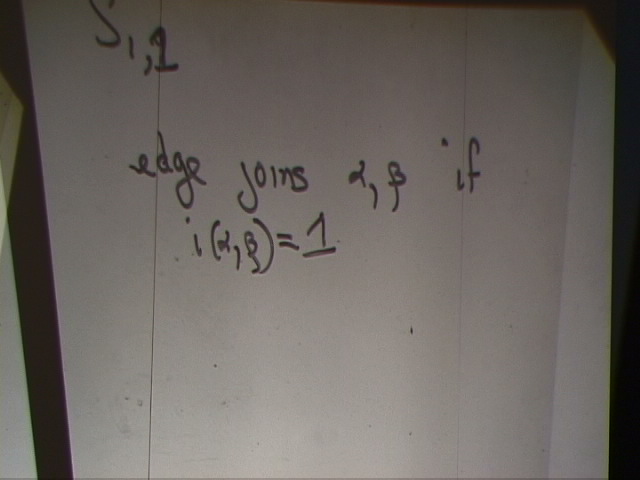 S₁,₁
edge joins α, β if
i(α,β)=1